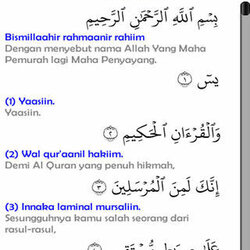 بِسْمِ اللَّهِ الرَّحْمَٰنِ الرَّحِيمِ
Bismillaahir rahmaanir rahiim
Dengan menyebut nama Allah Yang Maha
Pemurah lagi Maha Penyayang.
يسٓ ﴿١﴾
(1) Yaasiin.
Yaasiin.
وَالْقُرْءَانِ الْحَكِيمِ ﴿٢﴾
(2) Wal qur'aanil hakiim.
Demi Al Quran yang penuh hikmah,
إِنَّكَ لَمِنَ الْمُرْسَلِينَ ﴿٣﴾
(3) Innaka laminal mursaliin.
Sesungguhnya kamu salah seorang dari
rasul-rasul,